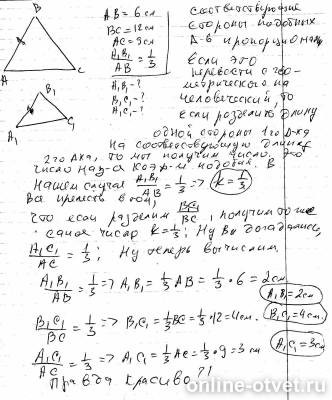 B
A
C
B₁
A₁
C₁
AB = 6 см
BC = 12 см
AC = 9 см
A₁B₁/AB = 1/3
A₁B₁ - ?
B₁C₁ - ?
A₁C₁ - ?
соответствующие
стороны подобных
Δ-в пропорциональ
если это
перевести с гео-
метрического на
человеческий, то
если разделить длину
одной стороны 1го Δ-ка
на соответствующую длину
2го Δка, то мы получим число, это
число наз-а коэф-м подобия. В
нашем случае A₁B₁/AB = 1/3 => k = 1/3
что если разделим B₁C₁/BC, получим то же
самое число k = 1/3; Ну вы догадались,
A₁C₁/AC = 1/3; Ну теперь вычислим
A₁B₁/AB = 1/3 => A₁B₁ = 1/3 AB = 1/3 · 6 = 2 см
A₁B₁ = 2 см
B₁C₁/BC = 1/3 => B₁C₁ = 1/3 BC = 1/3 · 12 = 4 см.
B₁C₁ = 4 см,
A₁C₁/AC = 1/3 => A₁C₁ = 1/3 AC = 1/3 · 9 = 3 см
A₁C₁ = 3 см
Правда красиво?!
online-otvet.ru